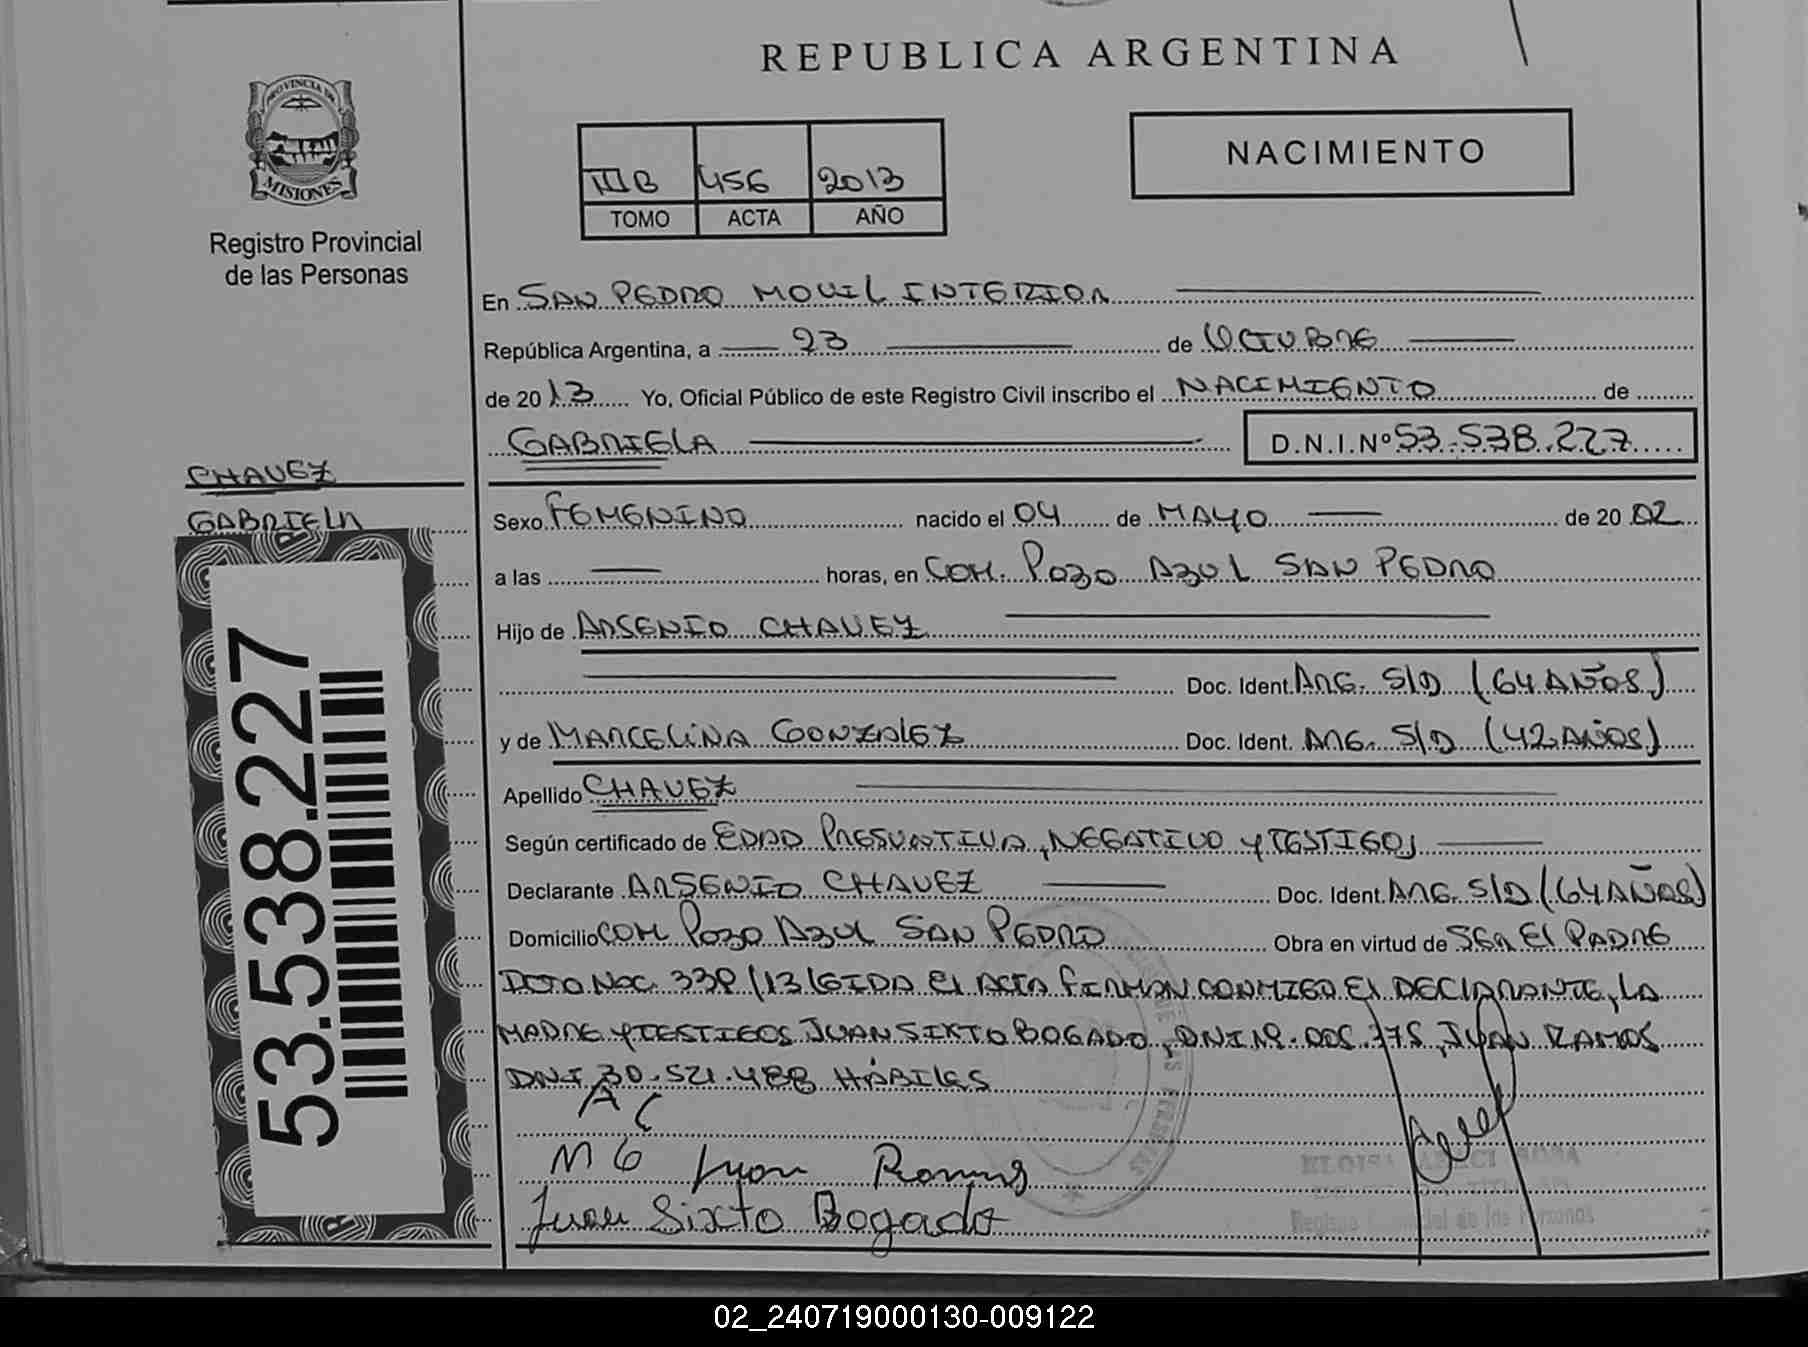 REPUBLICA ARGENTINA
PROVINCIA DE
MISIONES
Registro Provincial
de las Personas
IIIB 456 2013
TOMO ACTA AÑO
NACIMIENTO
En SAN PEDRO MOVIL INTERIOR
República Argentina, a 23 de OCTUBRE
de 2013 Yo, Oficial Público de este Registro Civil inscribo el NACIMIENTO de
GABRIELA D.N.I.Nº 53.538.227
CHAVEZ
GABRIELA
53.538.227
Sexo FEMENINO nacido el 04 de MAYO de 20 02
a las horas, en COM. POZO AZUL SAN PEDRO
Hijo de ARSENIO CHAVEZ
Doc. Ident. ARG. S/D (64 AÑOS)
y de MARCELINA GONZALEZ Doc. Ident. ARG. S/D (42 AÑOS)
Apellido CHAVEZ
Según certificado de EDAD PRESUNTIVA, NEGATIVO Y TESTIGOS
Declarante ARSENIO CHAVEZ Doc. Ident. ARG. S/D (64 AÑOS)
Domicilio COM POZO AZUL SAN PEDRO Obra en virtud de SER EL PADRE
DCTO NAC. 339/13 LEIDA EL ACTA FIRMAN CONMIGO EL DECLARANTE, LA
MADRE Y TESTIGOS JUAN SIXTO BOGADO, DNI 19.005.775, JUAN RAMOS
DNI 30.521.488 HÁBILES
A C
M G Juan Ramos
Juan Sixto Bogado
02_240719000130-009122